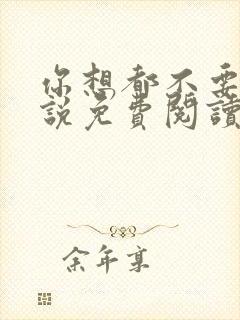 你想都不要
說免費閱讀
余年某